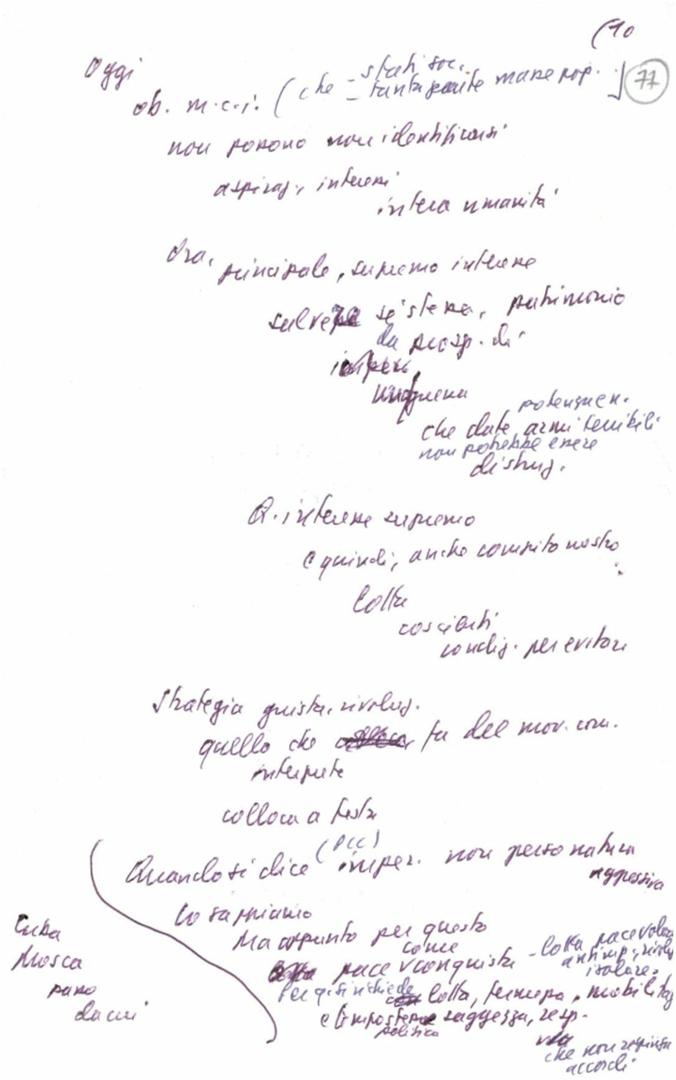 (10
77
Oggi
ob. m.c.i. (che = stati soc.
= tanta parte masse pop.
non possono non identificarsi
aspiraz., interessi
intera umanità
Ora, principale, supremo interesse
salvezza sistema, patrimonio
da prosp. di
guerra
termonucl.
che date armi terribili
non potrebbe essere
distrug.
Q. interesse supremo
e quindi, anche compito nostro
lotta
coscienti
condiz. per evitare
Strategia giusta, rivoluz.
quello che fa del mov. com.
interprete
colloca a testa
(PCC)
Quando si dice imper. non perso natura
aggressiva
Lo sappiamo
Ma appunto per questo
come
pace conquista - lotta pacevole
antimp., rivolu
isolare.
Per q. si richiede lotta, fermezza, mobilitaz
e saggezza, resp.
politica
che non respinga
accordi
Cuba
Mosca